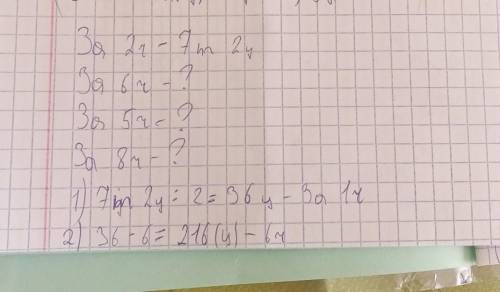 За 2ч - 7т 2ц
За 6ч - ?
За 5ч - ?
За 8ч - ?
1) 7т 2ц : 2 = 36ц - За 1ч
2) 36 · 6 = 216(ц) - 6ч